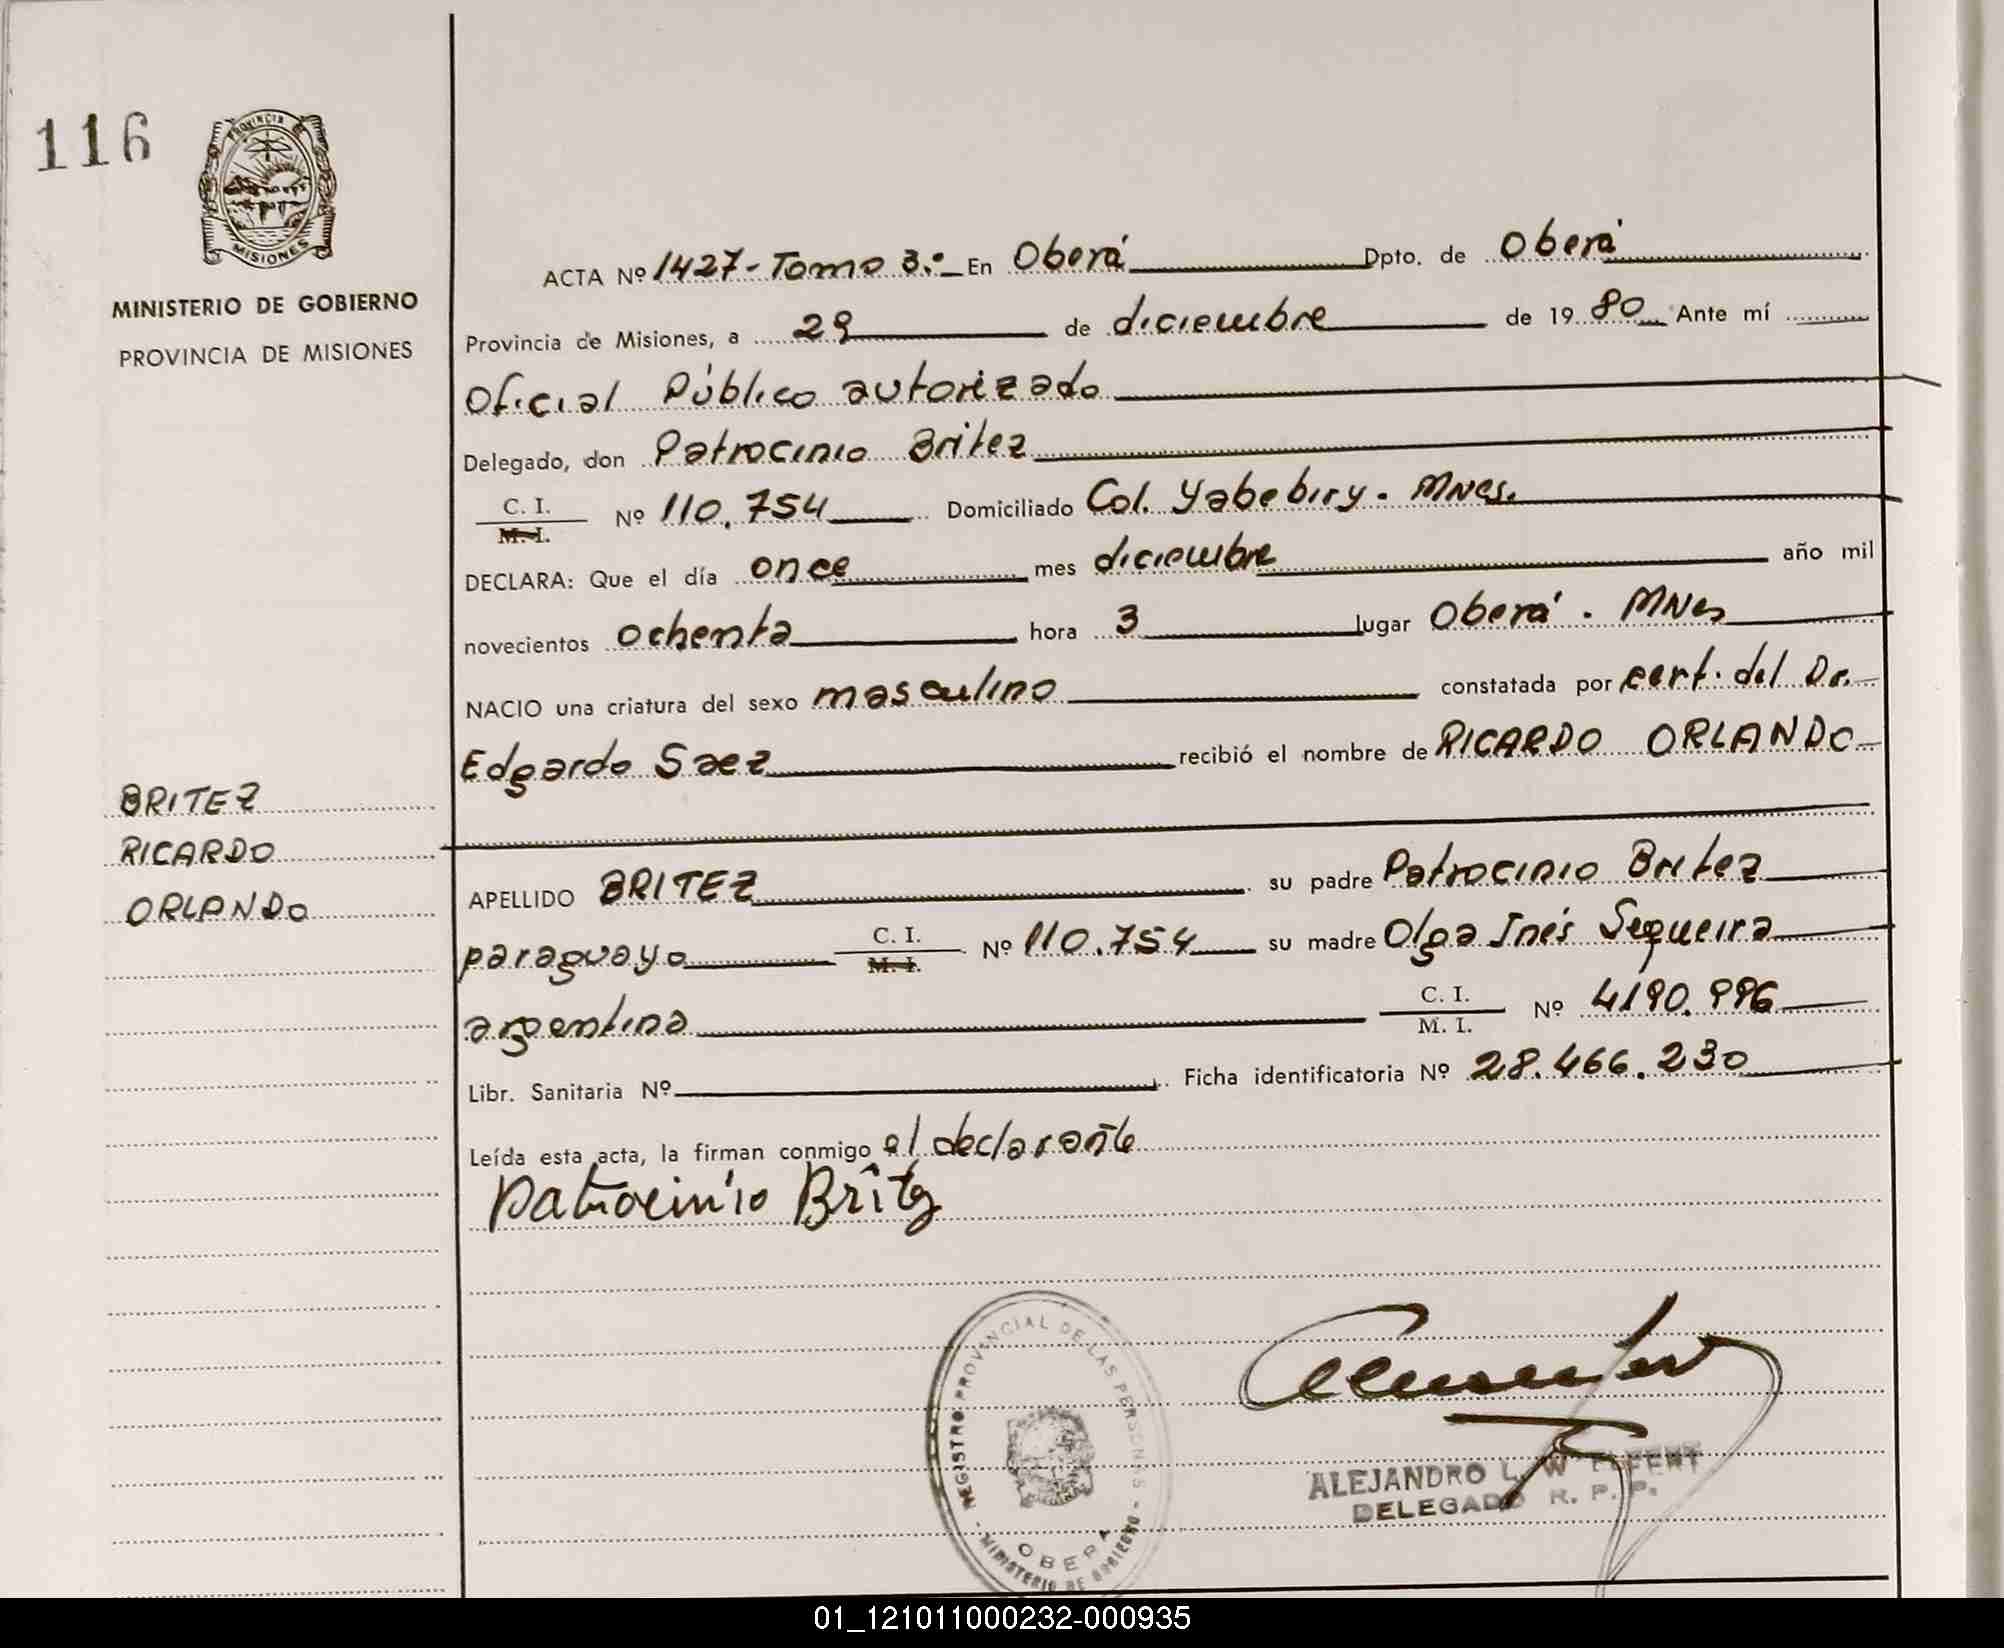 116
PROVINCIA DE
MISIONES
MINISTERIO DE GOBIERNO
PROVINCIA DE MISIONES
BRITEZ
RICARDO
ORLANDO
ACTA Nº 1427 - Tomo 3º En Oberá Dpto. de Oberá
Provincia de Misiones, a 29 de diciembre de 1980 Ante mí
Oficial Público autorizado
Delegado, don Patrocinio Britez
C. I.
M. I. Nº 110.754 Domiciliado Col. Yabebiry. MNes.
DECLARA: Que el día once mes diciembre año mil
novecientos ochenta hora 3 lugar Oberá. MNes
NACIO una criatura del sexo masculino constatada por cert. del Dr.
Edgardo Saez recibió el nombre de RICARDO ORLANDO
APELLIDO BRITEZ su padre Patrocinio Britez
paraguayo C. I. M. I. Nº 110.754 su madre Olga Inés Sequeira
argentina C. I. M. I. Nº 4190.996
Libr. Sanitaria Nº Ficha identificatoria Nº 28.466.230
Leída esta acta, la firman conmigo el declarante
Patrocinio Britez
REGISTRO PROVINCIAL DE LAS PERSONAS
OBERA
MINISTERIO DE GOBIERNO
ALEJANDRO L. W
DELEGADO R. P. P.
01_121011000232-000935